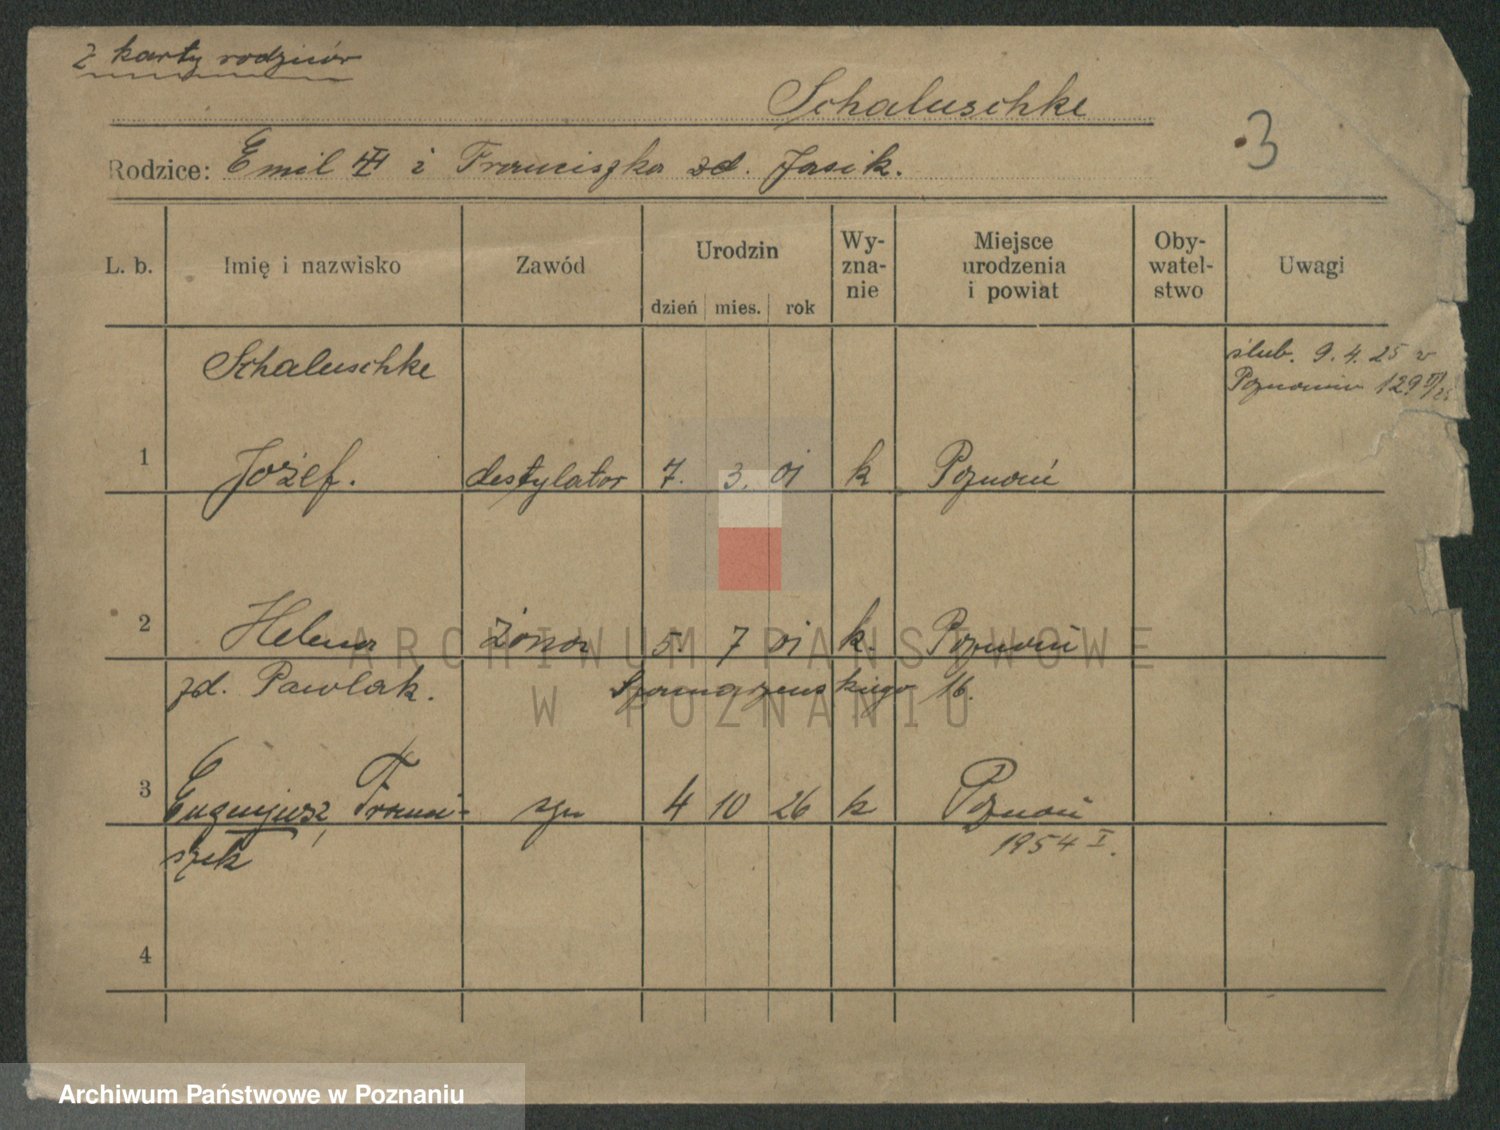 z karty rodziców
Schaluschke
3
Rodzice: Emil III i Franciszka zd. Jasik.
L. b. Imię i nazwisko Zawód Urodzin dzień mies. rok Wy-zna-nie Miejsce urodzenia i powiat Oby-watel-stwo Uwagi
Schaluschke ślub. 9.4.25 w
Poznaniu 129
1 Józef. destylator 7. 3. 01 k Poznań
2 Helena żona 5. 7 01 k. Poznań
zd. Pawlak. 16.
3 Eugeniusz, Franci- syn 4 10 26 k Poznań
szek 1954 I.
4
ARCHIWUM PAŃSTWOWE
W POZNANIU
Archiwum Państwowe w Poznaniu